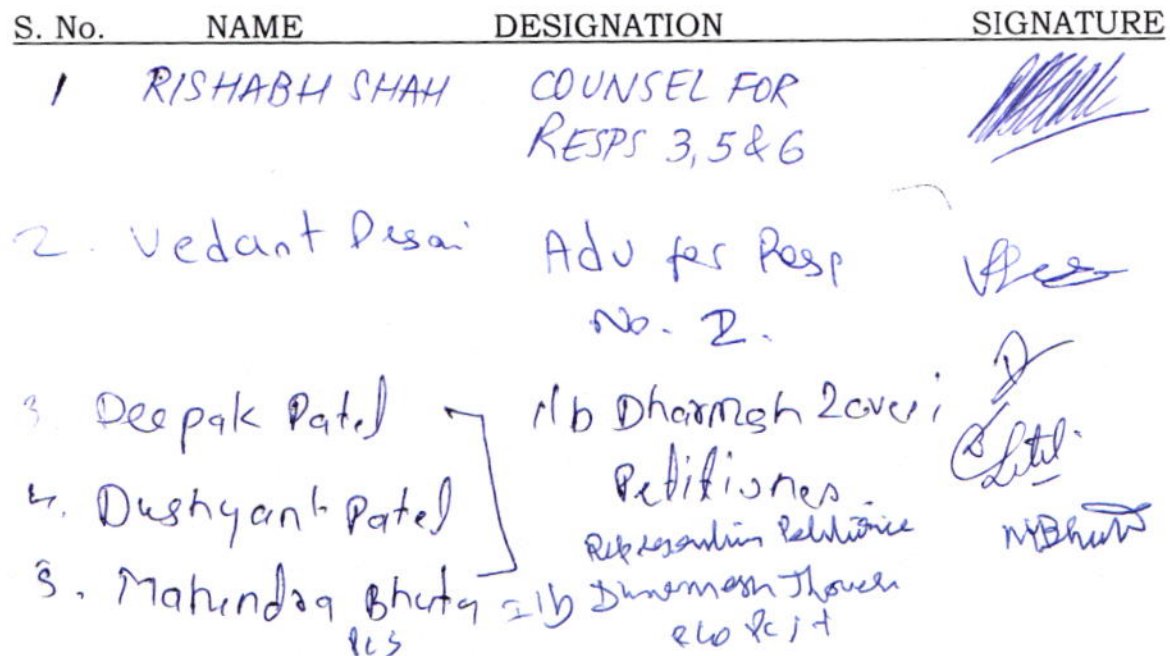 S. No. NAME DESIGNATION SIGNATURE
1 RISHABH SHAH COUNSEL FOR
RESPS 3, 5 & 6
2. Vedant Desai Adv for Resp
No. 2.
3. Deepak Patel i/b Dharmesh Zaveri
Petitioner.
4. Dushyant Patel
Representing Petitioner
5. Mahendra Bhuta i/b
PCS